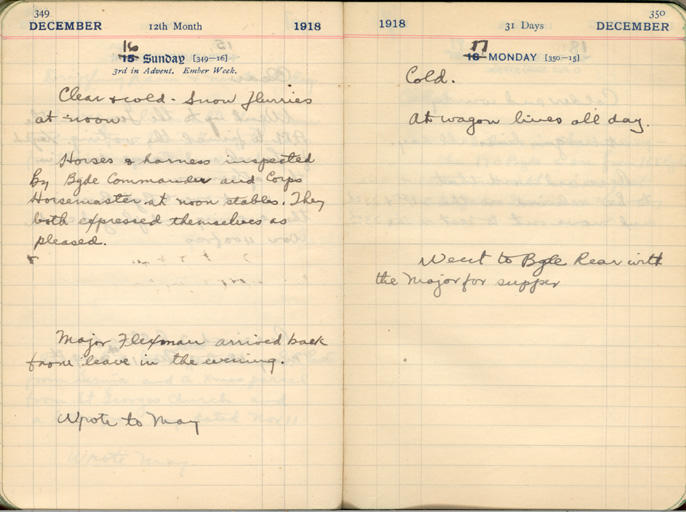 349
DECEMBER 12th Month 1918
16
15 Sunday [349—16]
3rd in Advent. Ember Week.
Clear & cold. Snow flurries
at noon
Horses & harness inspected
by Bgde Commander and Corps
Horsemaster at noon stables. They
both expressed themselves as
pleased.
Major Flexman arrived back
from leave in the evening.
Wrote to May
350
1918 31 Days DECEMBER
17
16 MONDAY [350—15]
Cold.
At wagon lines all day.
Went to Bgde Rear with
the Major for supper